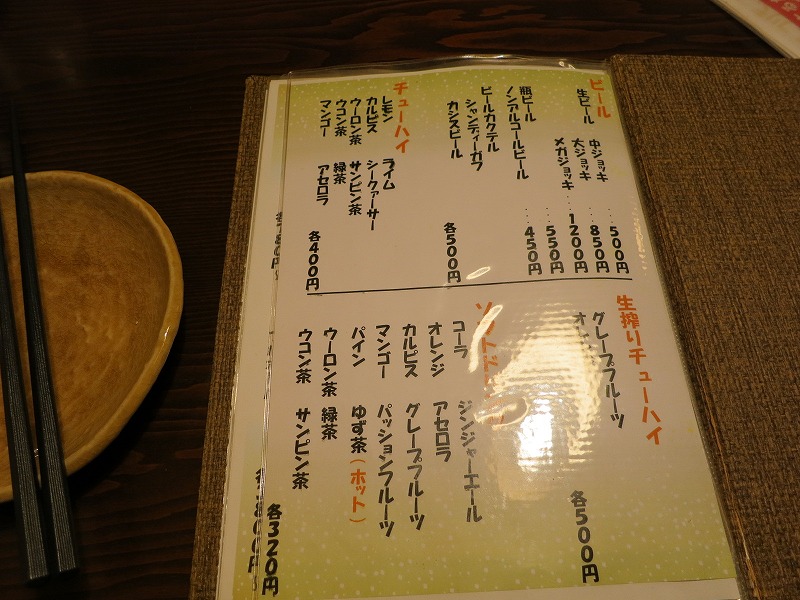 ビール
生ビール
中ジョッキ …500円
大ジョッキ …850円
メガジョッキ …1200円
瓶ビール …550円
ノンアルコールビール …450円
ビールカクテル
シャンディーガフ
カシスビール
各500円
チューハイ
レモン ライム
カルピス シークァーサー
ウーロン茶 サンピン茶
ウコン茶 緑茶
マンゴー アセロラ
各400円
生搾りチューハイ
グレープフルーツ
各500円
コーラ ジンジャーエール
オレンジ アセロラ
カルピス グレープフルーツ
マンゴー パッションフルーツ
パイン ゆず茶(ホット)
ウーロン茶 緑茶
ウコン茶 サンピン茶
各320円